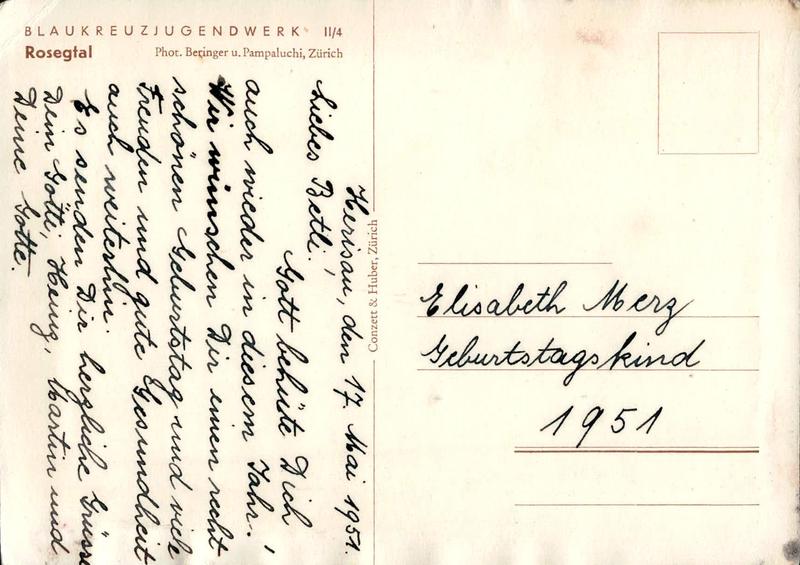 BLAUKREUZJUGENDWERK II/4
Rosegtal Phot. Beringer u. Pampaluchi, Zürich
Herisau, den 17. Mai 1951.
Liebes Betli!
Gott behüte Dich
auch wieder in diesem Jahr!
Wir wünschen Dir einen recht
schönen Geburtstag und viele
Freuden und gute Gesundheit
auch weiterhin.
Es senden Dir herzliche Grüsse
Dein Götti, Heinz, Martin und
Deine Gotte.
Conzett & Huber, Zürich
Elisabeth Merz
Geburtstagskind
1951